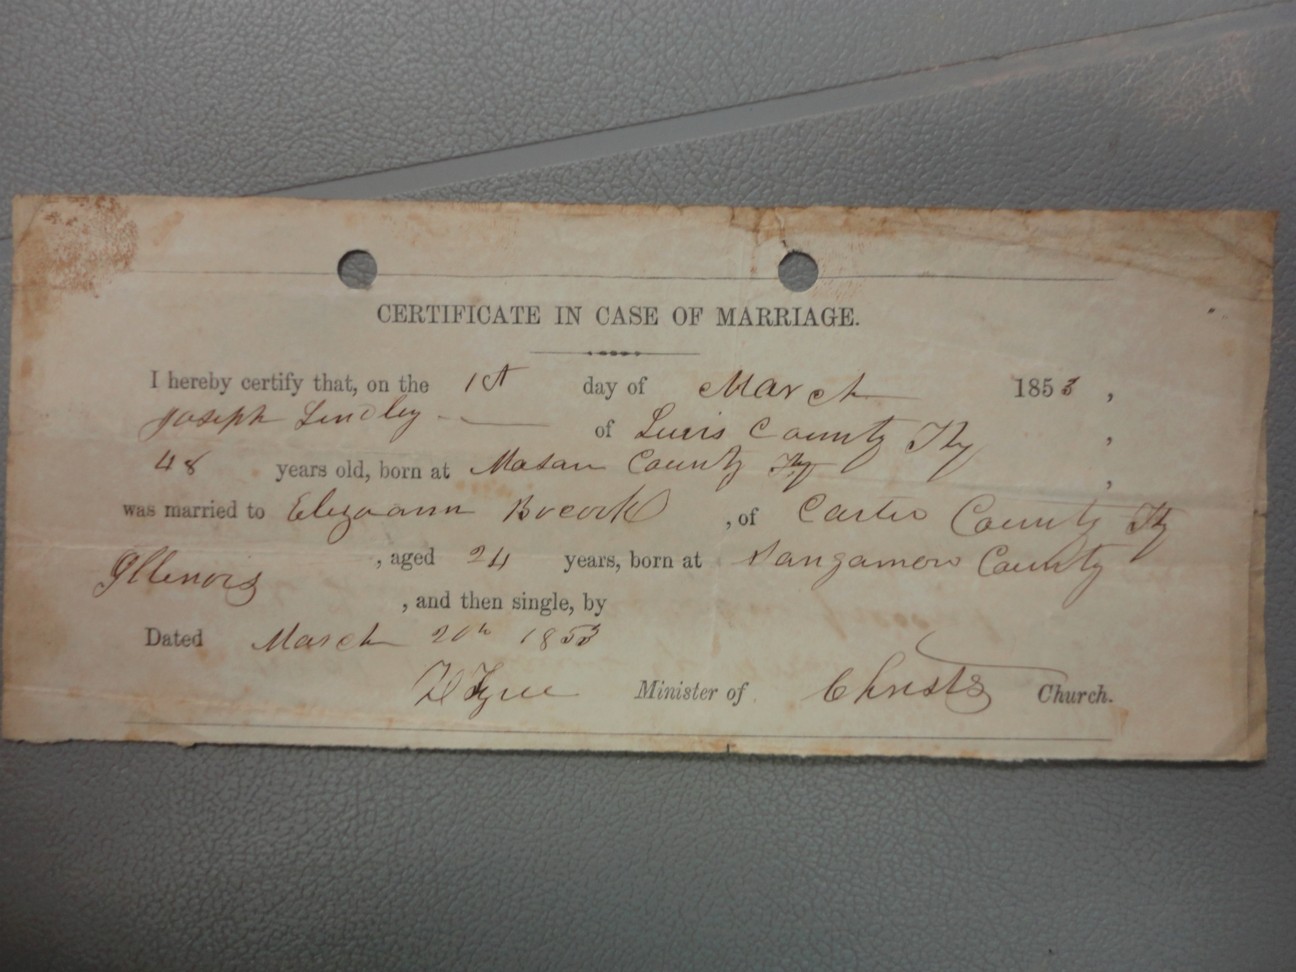 CERTIFICATE IN CASE OF MARRIAGE.
I hereby certify that, on the 1st day of March 1853,
Joseph Lindley of Lewis County Ky,
48 years old, born at Mason County Ky,
was married to Elizaann Bocock, of Carter County Ky
Illenois, aged 24 years, born at Sangamow County
, and then single, by
Dated March 20th 1853
Minister of Christs Church.